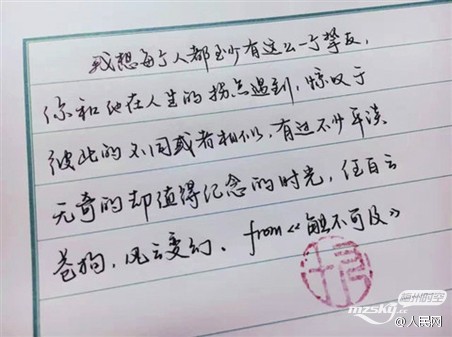 我想每个人都至少有这么一个挚友，
你和他在人生的拐点遇到，惊叹于
彼此的不同或者相似，有过不少平淡
无奇的却值得纪念的时光，任白云
苍狗，风云变幻。from《触不可及》
mzsky.cc
@人民网